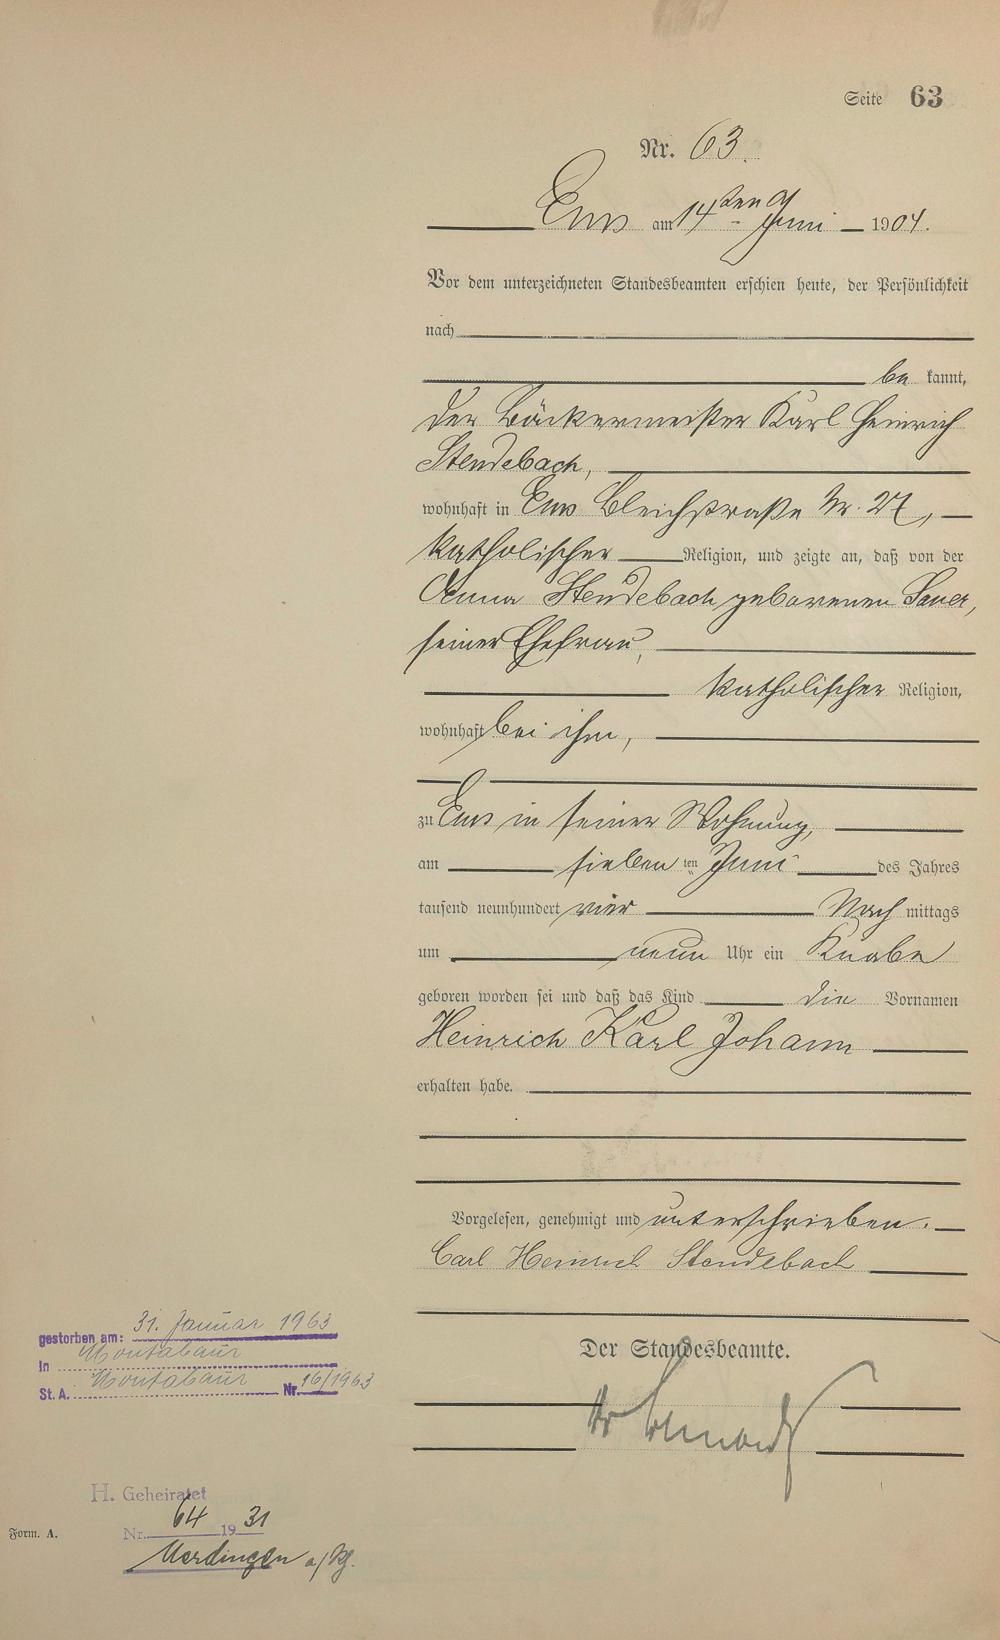 Seite 63
Nr. 63.
Ems am 14ten Juni 1904.
Vor dem unterzeichneten Standesbeamten erschien heute, der Persönlichkeit
nach
be kannt,
der Bäckermeister Karl Heinrich
Stendebach,
wohnhaft in Ems Bleichstraße Nr. 27,
katholischer Religion, und zeigte an, daß von der
Anna Stendebach geborenen Sauer,
seiner Ehefrau,
katholischer Religion,
wohnhaft bei ihm,
zu Ems in seiner Wohnung,
am sieben ten Juni des Jahres
tausend neunhundert vier Nach mittags
um neun Uhr ein Knabe
geboren worden sei und daß das Kind die Vornamen
Heinrich Karl Johann
erhalten habe.
Vorgelesen, genehmigt und unterschrieben.
Carl Heinrich Stendebach
Der Standesbeamte.
gestorben am: 31. Januar 1963
in Montabaur
St. A. Montabaur Nr. 16/1963
H. Geheiratet
Nr. 64 1931
Form. A.
a/Rh.